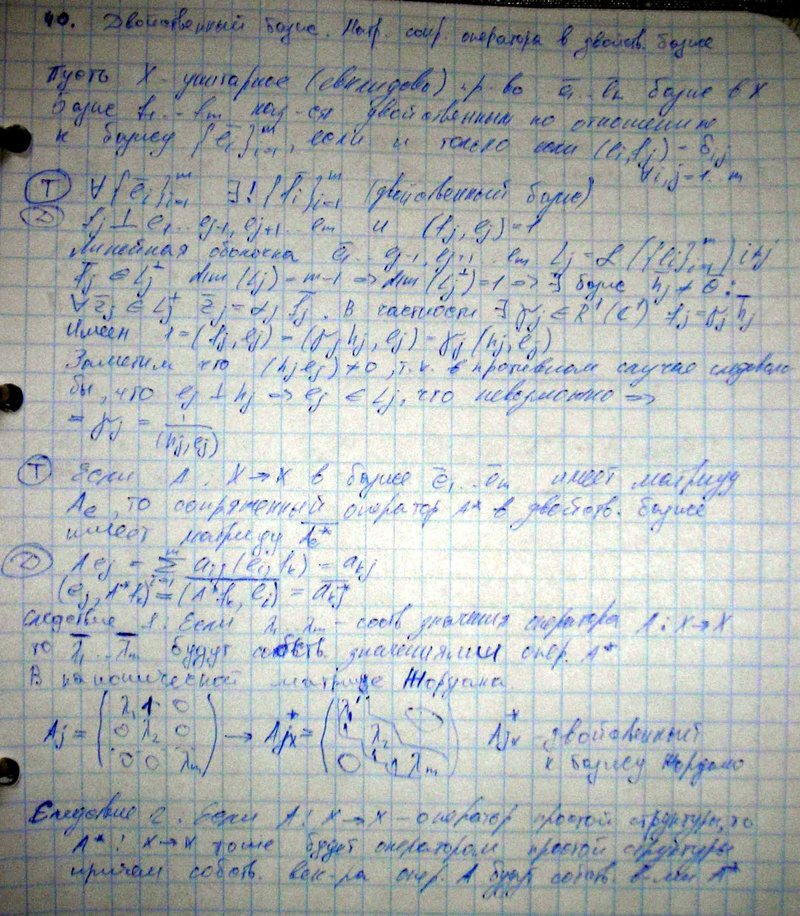 40. Двойственный базис. Матр. сопр. оператора в двойств. базисе
Пусть X - унитарное (евклидово) пр-во e̅₁...eₘ базис в X
Базис f₁...fₘ наз-ся двойственным по отношению
к базису {e̅ᵢ}ᵢ₌₁ᵐ, если и только если (eᵢ, fⱼ) = δᵢⱼ
∀ i,j=1..m
Т ∀{e̅ᵢ}ᵢ₌₁ᵐ ∃! {f̅ᵢ}ᵢ₌₁ᵐ (двойственный базис)
Д fⱼ ⊥ e₁...eⱼ₋₁, eⱼ₊₁...eₘ и (fⱼ, eⱼ) = 1
Линейная оболочка e̅₁...eⱼ₋₁, eⱼ₊₁...eₘ Lⱼ = L({eᵢ}ᵢ₌₁ᵐ) i≠j
fⱼ ∈ Lⱼ^⊥ dim(Lⱼ) = m-1 => dim(Lⱼ^⊥) = 1 => ∃ базис h̅ⱼ ≠ θ :
∀ z̅ⱼ ∈ Lⱼ^⊥ z̅ⱼ = αⱼ f̅ⱼ. В частности ∃ γⱼ ∈ R¹(C¹) fⱼ = γⱼ h̅ⱼ
Имеем 1 = (fⱼ, eⱼ) = (γⱼ hⱼ, eⱼ) = γⱼ (hⱼ, eⱼ)
Заметим что (hⱼ eⱼ) ≠ 0, т.к. в противном случае следовало
бы, что eⱼ ⊥ hⱼ => eⱼ ∈ Lⱼ, что невозможно =>
= γⱼ = 1/(hⱼ, eⱼ)
Т Если A : X→X в базисе e̅₁...e̅ₘ имеет матрицу
Aₑ, то сопряженный оператор A* в двойств. базисе
имеет матрицу Aₑ*
Д Aeⱼ = Σᵢ₌₁ᵐ aᵢⱼ (eᵢ, fₖ) = aₖⱼ
(eⱼ, A*fₖ) = (A*fₖ, eⱼ) = a̅ₖⱼ
Следствие 1. Если λ₁...λₘ - собств. значения оператора A : X→X
то λ̅₁...λ̅ₘ будут собств. значениями опер. A*
В канонической матрице Жордана
Aj = (λ₁ 1 0 0 λ₂ 0 0 0 λₘ) → Ajx* = (λ₁ λ₂ 0 1 λₘ) Ajx* - двойственный
к базису Жордана
Следствие 2. Если A : X→X оператор простой структуры, то
A* : X→X тоже будет оператором простой структуры
причем собств. век-ра опер. A будут собств. в-ми A*